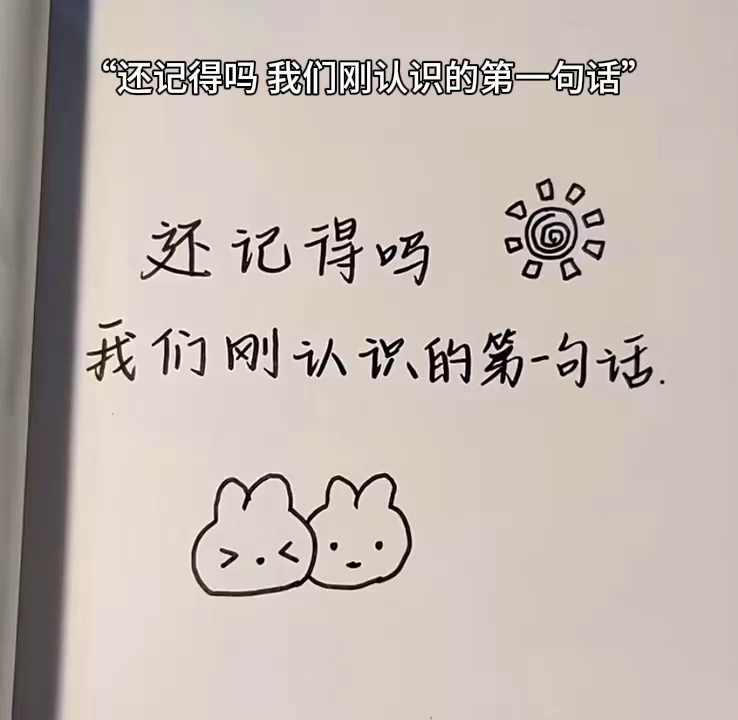 “还记得吗 我们刚认识的第一句话”
还记得吗
我们刚认识的第一句话.